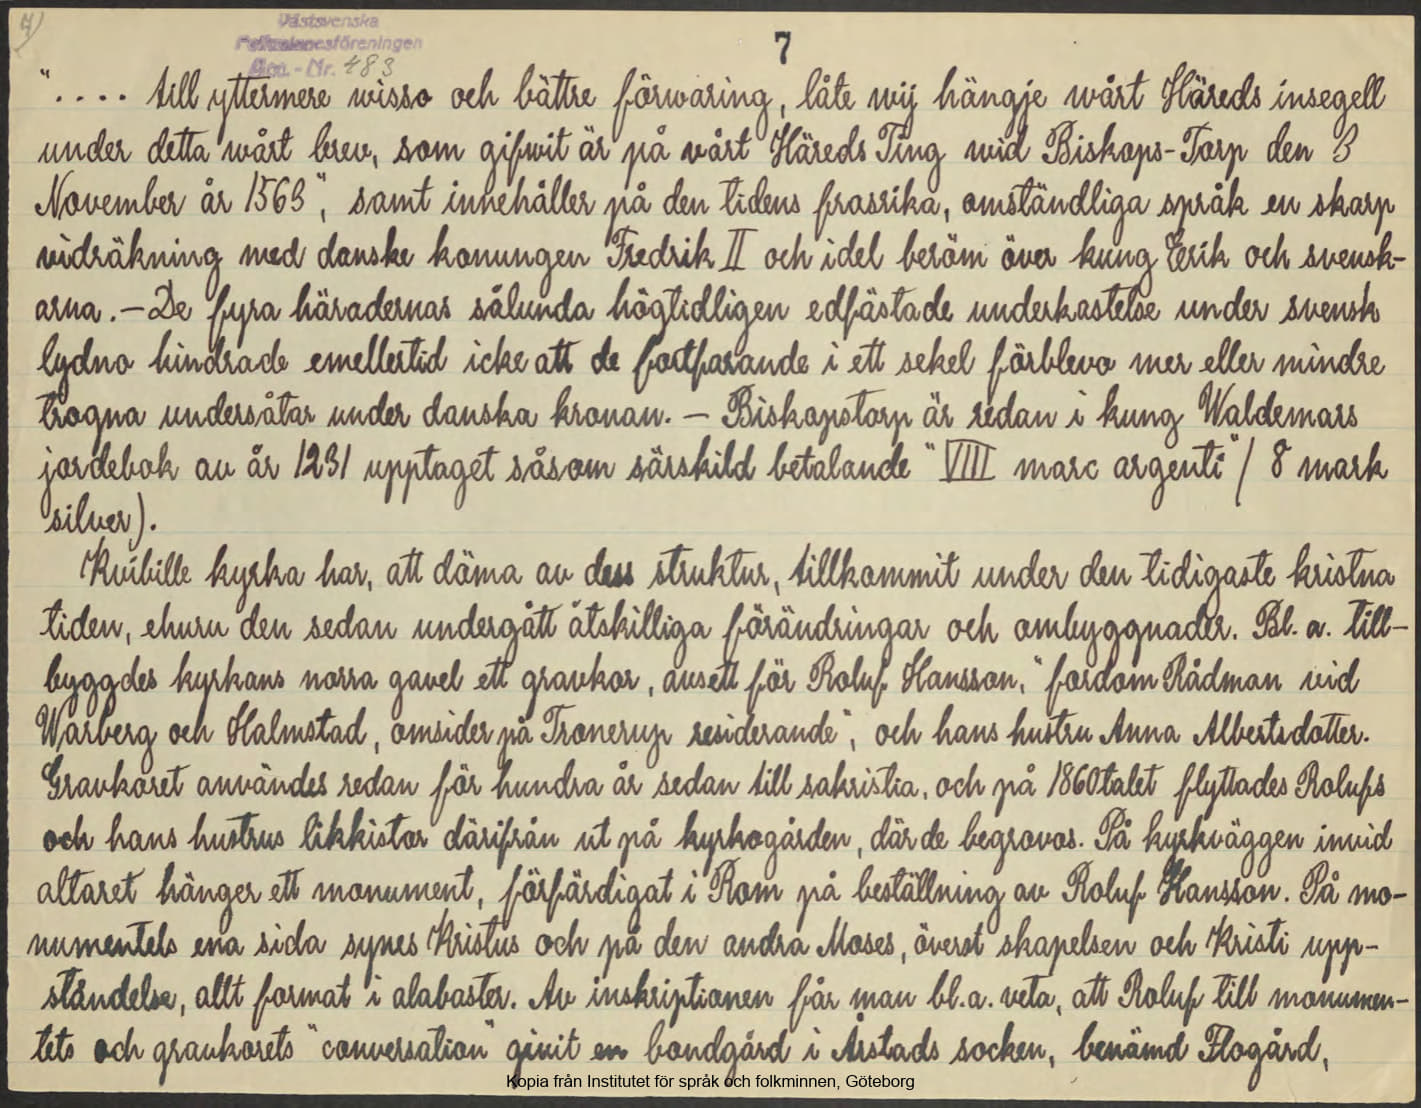 7)
Västsvenska
Folkminnesföreningen
Acc.-Nr. 483
7
".... till yttermere wisso och bättre förwaring, låte wij hängje wårt Häreds insegell
under detta wårt brev, som gifwit är på vårt Häreds Ting wid Biskops-Torp den 3
November år 1563", samt innehåller på den tidens frasrika, omständliga språk en skarp
vidräkning med danske konungen Fredrik II och idel beröm över kung Erik och svensk-
arna. — De fyra häradernas sålunda högtidligen edfästade underkastelse under svensk
lydno hindrade emellertid icke att de fortfarande i ett sekel förblevo mer eller mindre
trogna undersåtar under danska kronan. — Biskopstorp är redan i kung Waldemars
jordebok av år 1231 upptaget såsom särskild betalande "VIII marc argenti" / 8 mark
silver).
Kvibille kyrka har, att döma av dess struktur, tillkommit under den tidigaste kristna
tiden, ehuru den sedan undergått åtskilliga förändringar och ombyggnader. Bl. a. till-
byggdes kyrkans norra gavel ett gravkor, avsett för Roluf Hansson, "fordom Rådman vid
Warberg och Halmstad, omsider på Tronerup residerande", och hans hustru Anna Albertsdotter.
Gravkoret användes redan för hundra år sedan till sakristia, och på 1860talet flyttades Rolufs
och hans hustrus likkistor därifrån ut på kyrkogården, där de begrovos. På kyrkväggen invid
altaret hänger ett monument, förfärdigat i Rom på beställning av Roluf Hansson. På mo-
numentets ena sida synes Kristus och på den andra Moses, överst skapelsen och Kristi upp-
ståndelse, allt format i alabaster. Av inskriptionen får man bl.a. veta, att Roluf till monumen-
tets och gravkorets "conversation" givit en bondgård i Årstads socken, benämd Flogård,
Kopia från Institutet för språk och folkminnen, Göteborg